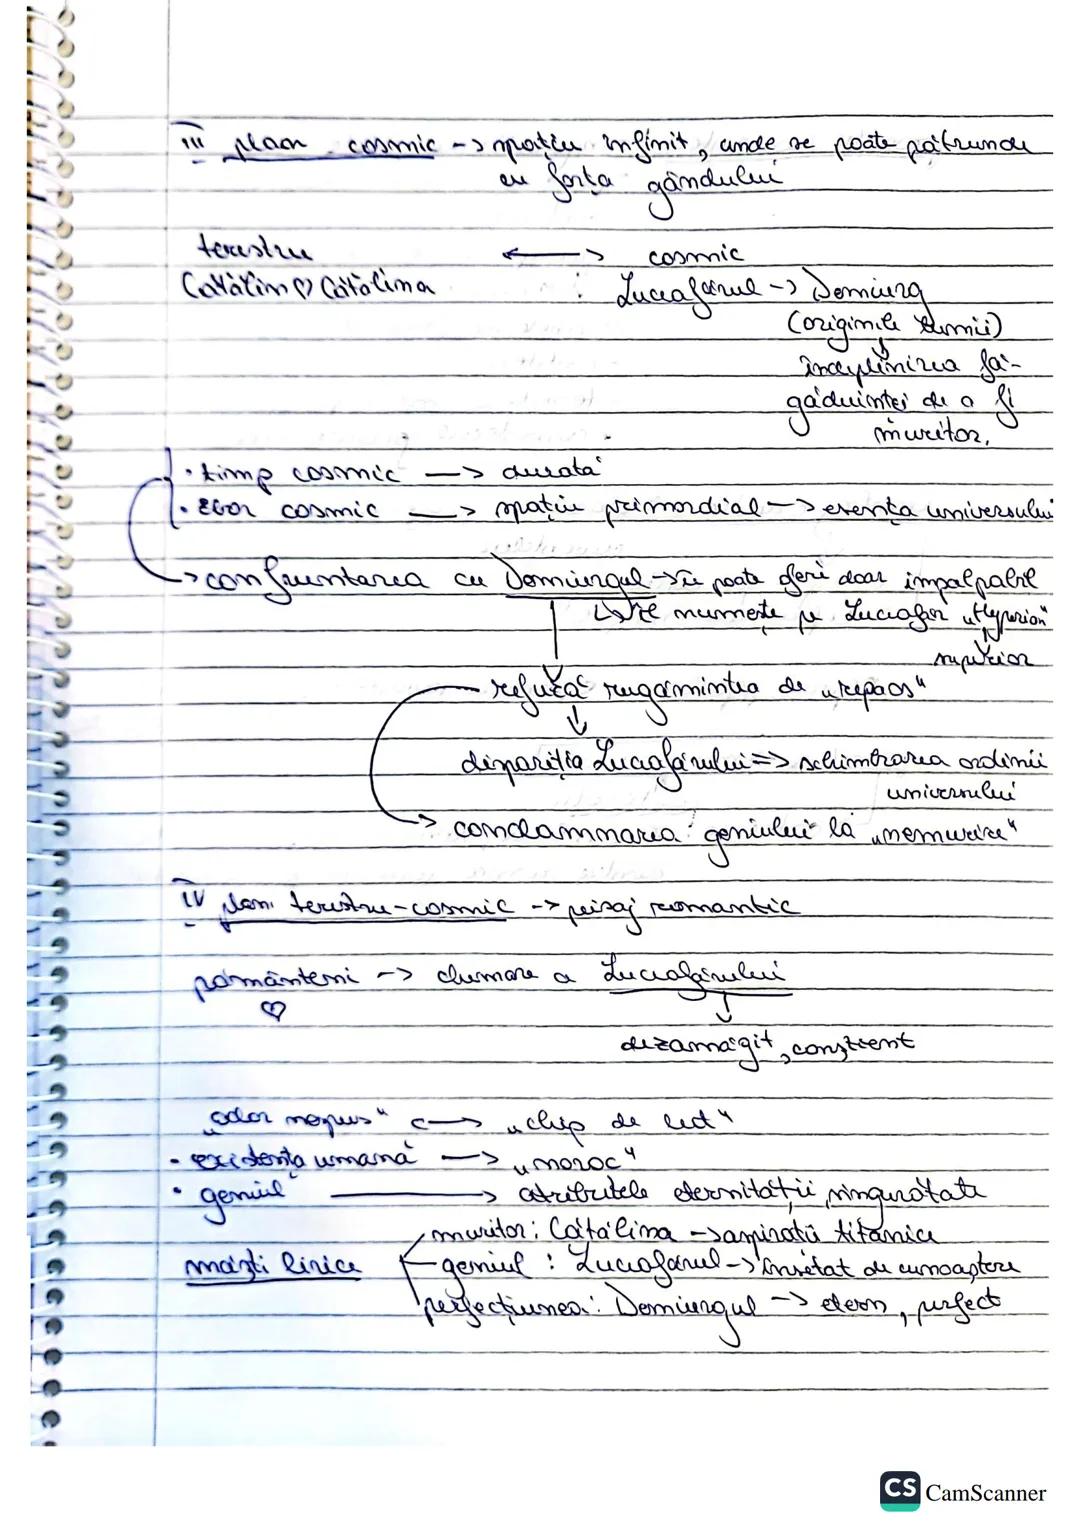 III plan cosmic -> spațiu infinit, unde se poate pătrunde
cu forța gândului
terestru <-> cosmic
Cătălin ♡ Cătălina Luceafărul -> Demiurg
(originile lumii)
↓
îndeplinirea fă-
găduinței de a fi
muritor.
• timp cosmic -> durată
• zbor cosmic -> spațiu primordial -> esența universului
-> confruntarea cu Demiurgul -> îi poate oferi doar impalpabil
↳ îl numește pe Luceafăr „Hyperion"
superior
refuză rugămintea de „repaos"
↓
dispariția Luceafărului => schimbarea ordinii
universului
-> condamnarea geniului la „nemurire"
IV plan terestru-cosmic -> peisaj romantic
pământeni -> chemare a Luceafărului
♡ ↓
dezamăgit, conștient
„odor nespus" <-> „chip de lut"
• existența umană -> „noroc"
• geniul -> atributele eternității, singurătate
muritor: Cătălina -> aspirații titanice
măști lirice geniul: Luceafărul -> însetat de cunoaștere
perfecțiunea: Demiurgul -> etern, perfect
CS CamScanner